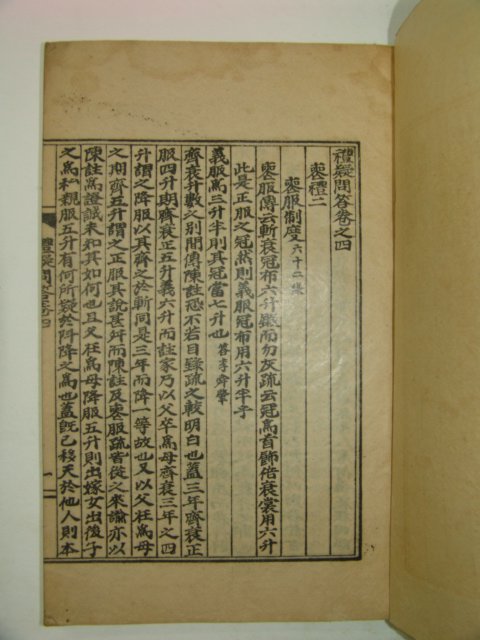 禮疑問答卷之四
喪禮二
喪服制度六十二條
喪服傳云斬衰冠布六升鍛而勿灰疏云冠爲首飾倍衰裳用六升
此是正服之冠然則義服冠布用六升半乎
義服爲三升半則其冠當七升也答李舜肇
齊衰升數之別間傳陳註恐不若目錄疏之較明白也蓋三年齊衰正
服四升期齊衰正五升義六升而註家乃以父卒爲母齊衰三年之四
升謂之降服以其齊之於斬同是三年而降一等故也又以父在爲母
之期齊五升謂之正服其說甚舛而陳註及喪服疏皆從之來諭亦以
陳註爲證誠未知其如何也且父在爲母降服五升則出嫁女出後子
之爲私親服五升有何所疑於降降之爲也蓋旣已移天於他人則本
禮疑問答卷四
一